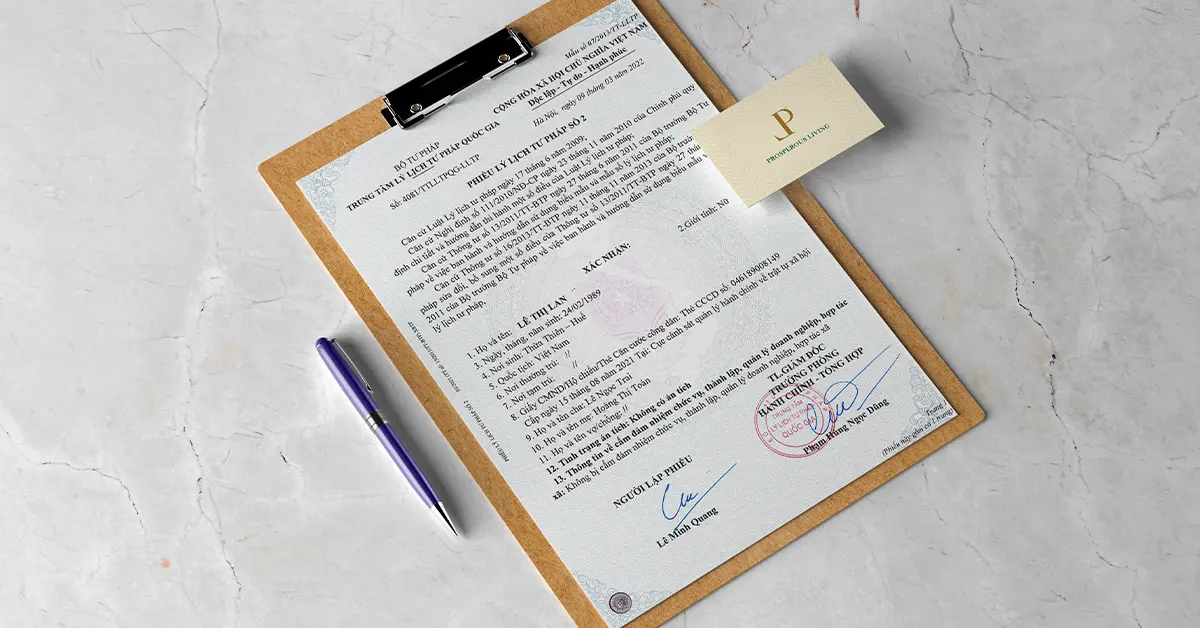 Mẫu số 07/2013/TT-LLTP
BỘ TƯ PHÁP
TRUNG TÂM LÝ LỊCH TƯ PHÁP QUỐC GIA
Số: 4081/TTLLTPQG-LLTP
CỘNG HÒA XÃ HỘI CHỦ NGHĨA VIỆT NAM
Độc lập - Tự do - Hạnh phúc
Hà Nội, ngày 09 tháng 03 năm 2022
PHIẾU LÝ LỊCH TƯ PHÁP SỐ 2
Căn cứ Luật Lý lịch tư pháp ngày 17 tháng 6 năm 2009;
Căn cứ Nghị định số 111/2010/NĐ-CP ngày 23 tháng 11 năm 2010 của Chính phủ quy
định chi tiết và hướng dẫn thi hành một số điều của Luật Lý lịch tư pháp;
Căn cứ Thông tư số 13/2011/TT-BTP ngày 27 tháng 6 năm 2011 của Bộ trưởng Bộ Tư
pháp về việc ban hành và hướng dẫn sử dụng biểu mẫu và mẫu sổ lý lịch tư pháp;
Căn cứ Thông tư số 16/2013/TT-BTP ngày 11 tháng 11 năm 2013 của Bộ trưởng
pháp sửa đổi, bổ sung một số điều của Thông tư số 13/2011/TT-BTP ngày 27 tháng
2011 của Bộ trưởng Bộ Tư pháp về việc ban hành và hướng dẫn sử dụng biểu mẫu
lý lịch tư pháp,
XÁC NHẬN:
1. Họ và tên: LÊ THỊ LAN
2.Giới tính: Nữ
3. Ngày, tháng, năm sinh: 24/02/1989
4. Nơi sinh: Thừa Thiên – Huế
5. Quốc tịch: Việt Nam
6. Nơi thường trú: //
7. Nơi tạm trú: //
8. Giấy CMND/Hộ chiếu/Thẻ Căn cước công dân: Thẻ CCCD số: 046189008149
Cấp ngày 15 tháng 08 năm 2021 Tại: Cục cảnh sát quản lý hành chính về trật tự xã hội
9. Họ và tên cha: Lê Ngọc Trai
10. Họ và tên mẹ: Hoàng Thị Toán
11. Họ và tên vợ/chồng: //
12. Tình trạng án tích: Không có án tích
13. Thông tin về cấm đảm nhiệm chức vụ, thành lập, quản lý doanh nghiệp, hợp tác
xã: Không bị cấm đảm nhiệm chức vụ, thành lập, quản lý doanh nghiệp, hợp tác xã
NGƯỜI LẬP PHIẾU
Lê Minh Quang
TL.GIÁM ĐỐC
TRƯỞNG PHÒNG
HÀNH CHÍNH - TỔNG HỢP
TRUNG TÂM
LÝ LỊCH TƯ PHÁP
QUỐC GIA
Phạm Hùng Ngọc Dũng
(Phiếu này gồm có 1 trang)
PHIẾU LÝ LỊCH TƯ PHÁP SỐ 2
PROSPEROUS LIVING